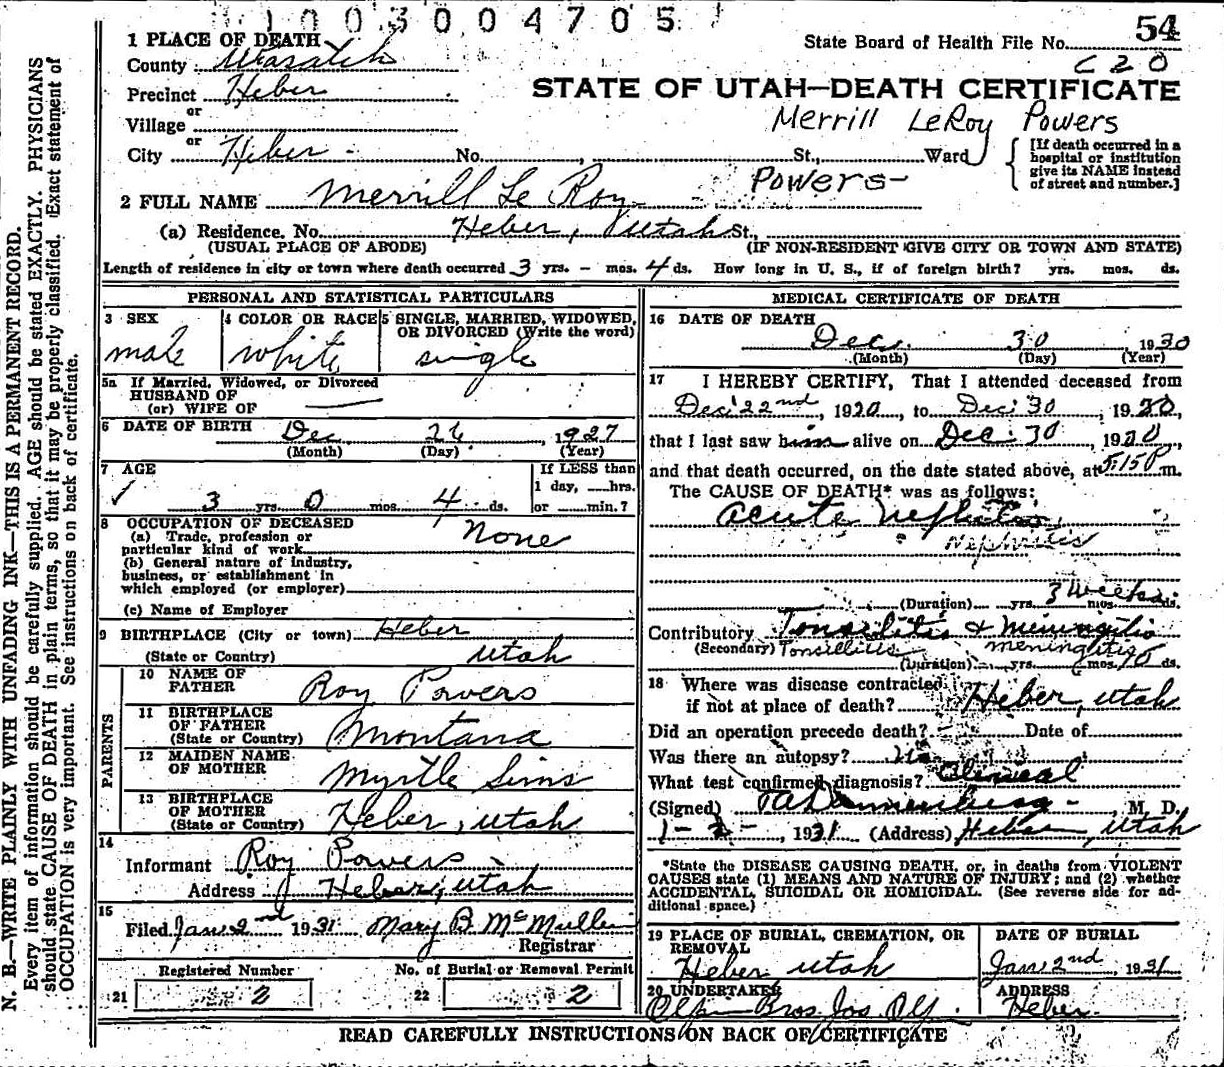 1003004705
1 PLACE OF DEATH
State Board of Health File No. 54
County Wasatch
C20
Precinct Heber
STATE OF UTAH—DEATH CERTIFICATE
or
Village
Merrill LeRoy Powers
or
City Heber - No. , St., Ward
[If death occurred in a hospital or institution give its NAME instead of street and number.]
Powers-
2 FULL NAME Merrill Le Roy
(a) Residence. No. Heber, Utah St.,
(USUAL PLACE OF ABODE) (IF NON-RESIDENT GIVE CITY OR TOWN AND STATE)
Length of residence in city or town where death occurred 3 yrs. - mos. 4 ds. How long in U. S., if of foreign birth? yrs. mos. ds.
PERSONAL AND STATISTICAL PARTICULARS
3 SEX
male
4 COLOR OR RACE
white
5 SINGLE, MARRIED, WIDOWED, OR DIVORCED (Write the word)
single
5a If Married, Widowed, or Divorced
HUSBAND OF
(or) WIFE OF
6 DATE OF BIRTH Dec 26, 1927
(Month) (Day) (Year)
7 AGE
3 yrs. 0 mos. 4 ds.
If LESS than
1 day, hrs.
or min.?
8 OCCUPATION OF DECEASED
(a) Trade, profession or
particular kind of work
None
(b) General nature of industry,
business, or establishment in
which employed (or employer)
(c) Name of Employer
9 BIRTHPLACE (City or town) Heber
(State or Country) Utah
PARENTS
10 NAME OF
FATHER Roy Powers
11 BIRTHPLACE
OF FATHER
(State or Country) Montana
12 MAIDEN NAME
OF MOTHER Myrtle Sims
13 BIRTHPLACE
OF MOTHER
(State or Country) Heber, Utah
14
Informant Roy Powers
Address Heber, Utah
15
Filed Jan. 2nd 1931 Mary B. McMullin
Registrar
Registered Number No. of Burial or Removal Permit
21 2 22 2
MEDICAL CERTIFICATE OF DEATH
16 DATE OF DEATH
Dec. 30, 1930
(Month) (Day) (Year)
17 I HEREBY CERTIFY, That I attended deceased from
Dec 22nd, 1930, to Dec 30, 1930,
that I last saw him alive on Dec 30, 1930,
and that death occurred, on the date stated above, at 5:15P m.
The CAUSE OF DEATH* was as follows:
acute Nephritis
Nephritis
(Duration) yrs. 3 weeks mos. ds.
Contributory Tonsilitis & Meningitis
(Secondary) Tonsillitis meningitis
(Duration) yrs. mos. 10 ds.
18 Where was disease contracted
if not at place of death? Heber, Utah
Did an operation precede death? Date of
Was there an autopsy? No
What test confirmed diagnosis? Clinical
(Signed) M. D.
1-2-, 1931 (Address) Heber, Utah
*State the DISEASE CAUSING DEATH, or, in deaths from VIOLENT
CAUSES state (1) MEANS AND NATURE OF INJURY; and (2) whether
ACCIDENTAL, SUICIDAL OR HOMICIDAL. (See reverse side for ad-
ditional space.)
19 PLACE OF BURIAL, CREMATION, OR
REMOVAL
Heber Utah
DATE OF BURIAL
Jan 2nd, 1931
20 UNDERTAKER
Bros Jos
ADDRESS
Heber.
READ CAREFULLY INSTRUCTIONS ON BACK OF CERTIFICATE
N. B.—WRITE PLAINLY WITH UNFADING INK—THIS IS A PERMANENT RECORD.
Every item of information should be carefully supplied. AGE should be stated EXACTLY. PHYSICIANS
should state CAUSE OF DEATH in plain terms, so that it may be properly classified. Exact statement of
OCCUPATION is very important. See instructions on back of certificate.